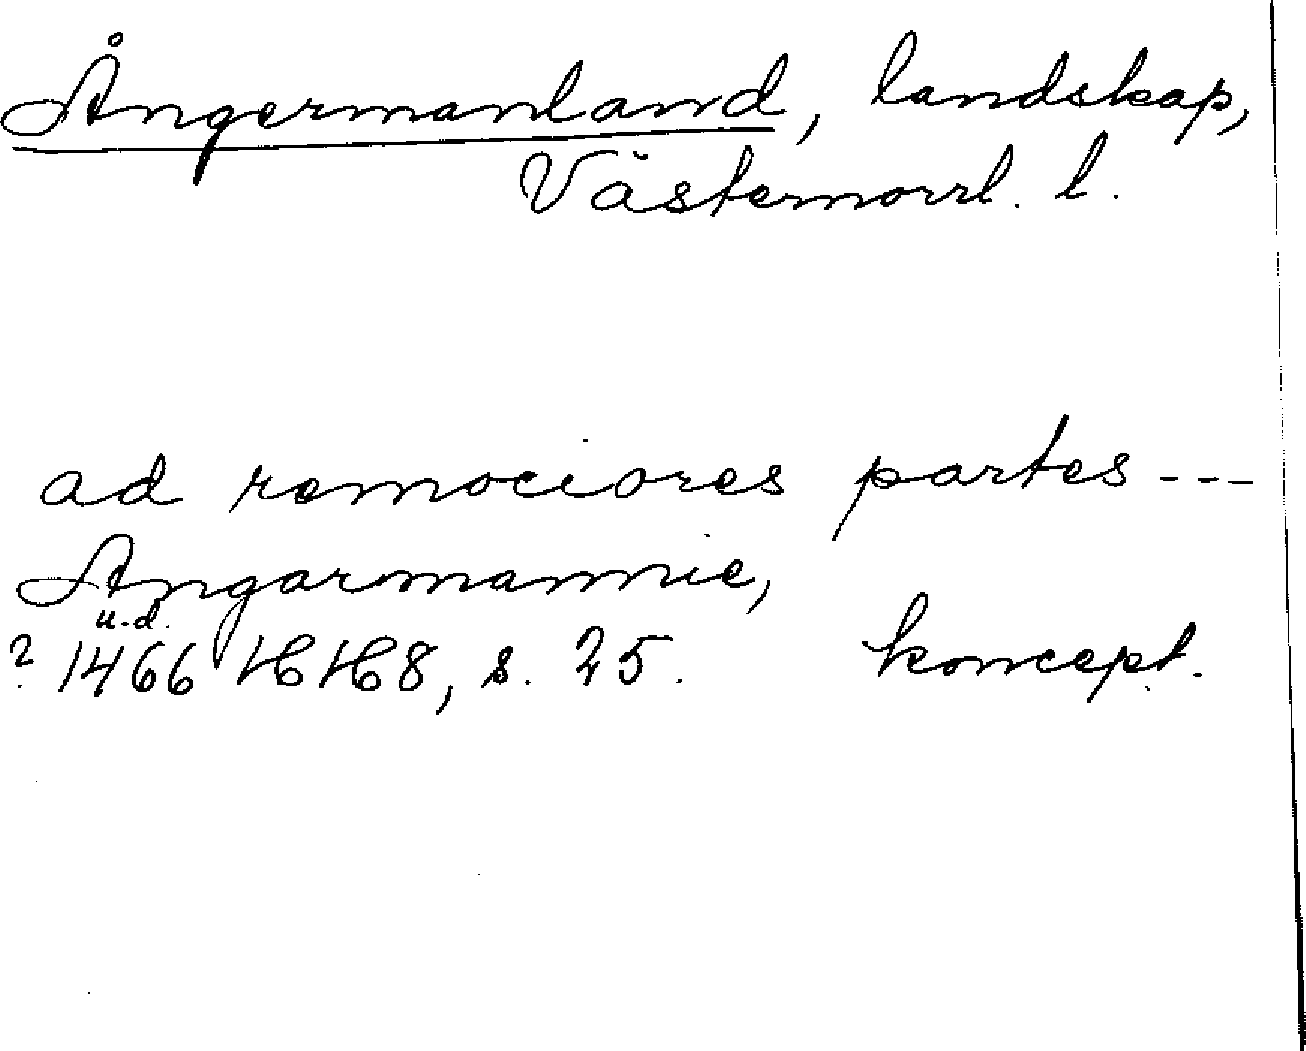 Ångermanland, landskap,
Västernorrl. l.
ad remociores partes ---
Angarmannie,
u.d.
? 1466 HH8, s. 25. koncept.